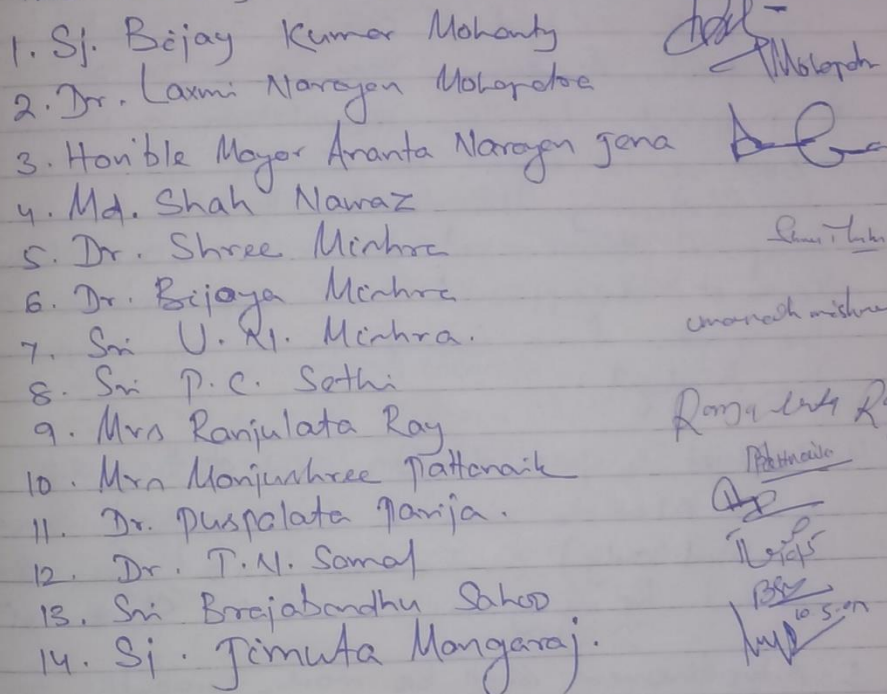 1. Sj. Bijay Kumar Mohanty
2. Dr. Laxmi Narayan Mohapatra
3. Hon'ble Mayor Ananta Narayan Jena
4. Md. Shah Nawaz
5. Dr. Shree Mishra
6. Dr. Bijaya Mishra
7. Sri U. N. Mishra. umanath mishra
8. Sri P. C. Sethi
9. Mrs Ranjulata Ray
10. Mrs Manjushree Pattanaik Pattnaik
11. Dr. Puspalata Parija.
12. Dr. T. N. Samal
13. Sri Brajabandhu Sahoo
14. Sj. Jimuta Mangaraj.